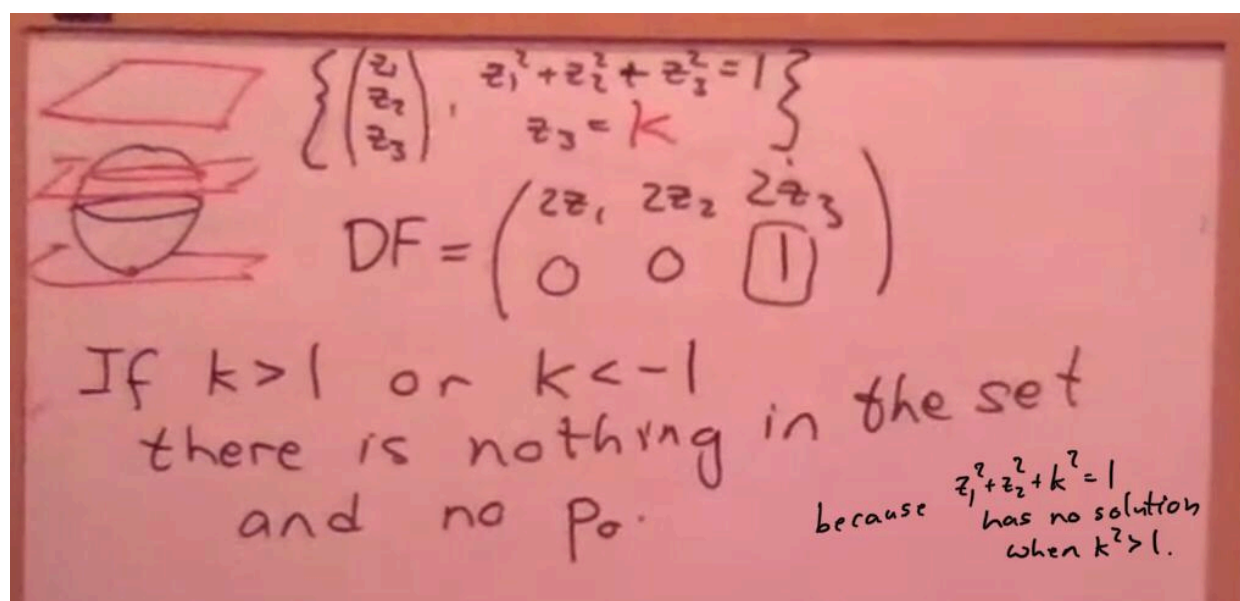 {(z₁ z₂ z₃), z₁² + z₂² + z₃² = 1
z₃ = k}
DF = (2z₁ 2z₂ 2z₃
0 0 1)
If k > 1 or k < -1
there is nothing in the set
and no po.
because z₁² + z₂² + k² = 1
has no solution
when k² > 1.